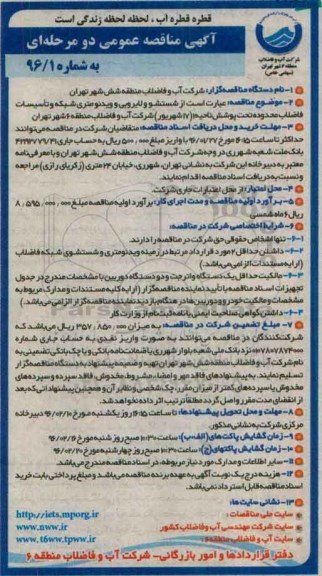 قطره قطره آب ، لحظه لحظه زندگی است
آگهی مناقصه عمومی دو مرحله‌ای
به شماره ۹۶/۱
شرکت آب و فاضلاب
منطقه ۶ شهر تهران
(سهامی خاص)
۱- نام دستگاه مناقصه‌گزار: شرکت آب و فاضلاب منطقه شش شهر تهران
۲- موضوع مناقصه: عبارت است از شستشو و لایروبی و ویدئومتری شبکه و تأسیسات
فاضلاب محدوده تحت پوشش ناحیه (۱۷ شهریور) شرکت آب و فاضلاب منطقه ۶ شهر تهران
۳- مهلت خرید و محل دریافت اسناد مناقصه: متقاضیان شرکت در مناقصه می‌توانند
حداکثر تا ساعت ۱۶:۱۵ مورخ ۹۶/۰۱/۲۷ با واریز مبلغ ۵۰۰،۰۰۰ ریال به حساب جاری
بانک ملت شعبه شهرری در وجه شرکت آب و فاضلاب منطقه شش شهر تهران و با معرفی‌نامه
معتبر به دبیرخانه این شرکت به نشانی تهران، شهرری، خیابان ۲۴ متری (زکریای رازی) مراجعه
و نسبت به دریافت اسناد مناقصه اقدام نمایند.
۴- محل اعتبار: از محل اعتبارات جاری شرکت.
۵- برآورد اولیه مناقصه و مدت اجرای کار: برآورد اولیه مناقصه مبلغ ۸،۵۹۵،۰۰۰،۰۰۰
ریال ۶ ماه شمسی
۶- شرایط اختصاصی شرکت در مناقصه:
۶-۱- تنها اشخاص حقوقی حق شرکت در مناقصه را دارند.
۶-۲- داشتن حداقل ۲ مورد قرارداد مرتبط در زمینه ویدئومتری و شستشوی شبکه فاضلاب
(ارایه مستندات الزامی می‌باشد)
۶-۳- مالکیت حداقل یک دستگاه واترجت و دو دستگاه دوربین با مشخصات مندرج در جدول
تجهیزات اسناد مناقصه با تأیید نماینده مناقصه‌گزار (ارایه کلیه مستندات و مدارک مربوط به
مشخصات و مالکیت خودرو و دوربین‌ها در هنگام بازدید نماینده مناقصه‌گزار الزامی می‌باشد.)
۶-۴- داشتن گواهی صلاحیت ایمنی پیمانکاران از وزارت کار
۷- مبلغ تضمین شرکت در مناقصه: به میزان ۳۵۷،۸۵۰،۰۰۰ ریال می‌باشد که
شرکت‌کنندگان در مناقصه می‌توانند به صورت واریز نقدی به حساب جاری شماره
نزد بانک ملی شعبه بلوار شهرری یا ضمانت‌نامه بانکی و یا چک بانکی تضمینی به
نام شرکت آب و فاضلاب منطقه شش شهر تهران تهیه و ضمیمه پیشنهاد به دستگاه مناقصه‌گزار
تسلیم نمایند. به پیشنهادهای فاقد مهر و امضاء، مشروط، مخدوش، فاقد سپرده و سپرده‌های
مخدوش یا سپرده‌های کمتر از میزان مقرر، چک شخصی و نظایر آن و همچنین پیشنهاداتی که بعد
از انقضای مدت مقرر واصل گردد مطلقاً ترتیب اثر داده نخواهد شد.
۸- مهلت و محل تحویل پیشنهادها: تا ساعت ۱۶:۱۵ روز یکشنبه مورخ ۹۶/۰۲/۱۰ دبیرخانه
مرکزی شرکت به نشانی مذکور.
۹- زمان گشایش پاکت‌های (الف-ب): ساعت ۱۰:۳۰ صبح روز شنبه مورخ
۱۰- زمان گشایش پاکتهای (ج): ساعت ۱۰:۳۰ صبح روز چهارشنبه مورخ ۹۶/۰۲/۲۰
۱۱- سایر اطلاعات و مدارک مورد نیاز مربوطه، در اسناد مناقصه مندرج می‌باشد.
۱۲- هزینه درج یک نوبت آگهی به عهده برنده مناقصه می‌باشد و مبلغ پرداختی بابت خرید
اسناد مناقصه قابل استرداد نمی‌باشد.
۱۳- نشانی سایت‌ها:
سایت ملی مناقصات : http://iets.mporg.ir
سایت شرکت مهندسی آب وفاضلاب کشور www.nww.ir
سایت آب و فاضلاب منطقه ۶ : www.t6ww.tpww.ir
دفتر قراردادها و امور بازرگانی- شرکت آب و فاضلاب منطقه ۶